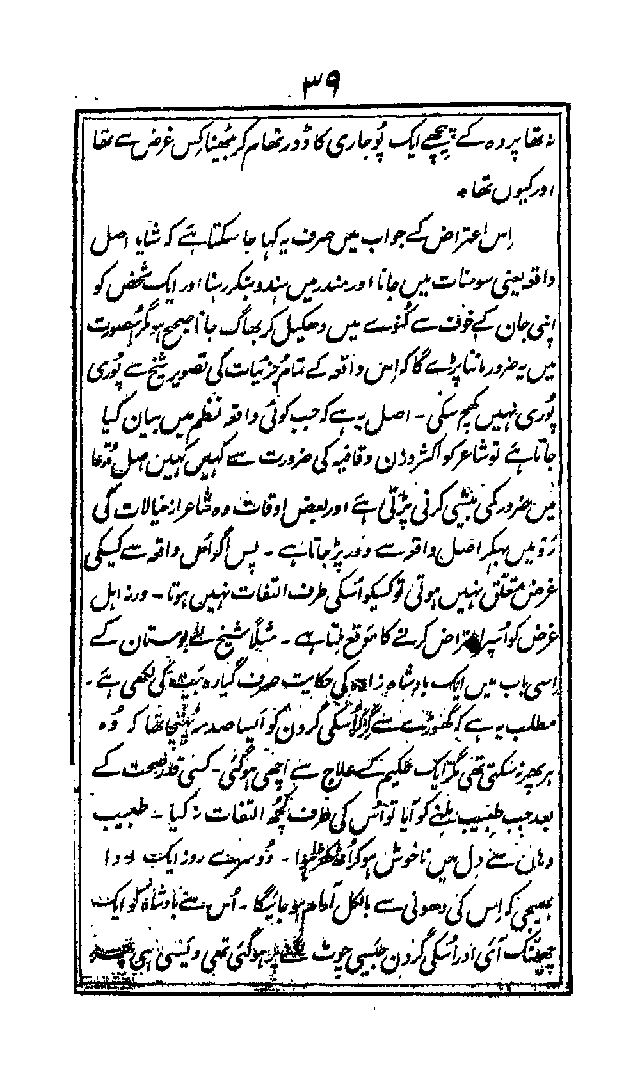 ۳۹
نہ تھا پردہ کے پیچھے ایک پُوجاری کا ڈور تھام کر بیٹھنا کِس غرض سے تھا
اور کیوں تھا۔
اِس اعتراض کے جواب میں صرف یہ کہا جا سکتا ہے کہ شاید اصل
واقعہ یعنی سومنات میں جانا اور مندر میں ہندو بنکر رہنا اور ایک شخص کو
اپنی جان کے خوف سے کُنوئے میں دھکیل کر بھاگ جانا صحیح ہو مگر اِس صورت
میں یہ ضرور ماننا پڑے گا کہ اِس واقعہ کے تمام جُزئیات کی تصویر شیخ سے پُوری
پُوری نہیں کھِچ سکی ۔ اصل یہ ہے کہ جب کوئی واقعہ نظم میں بیان کیا
جاتا ہے تو شاعر کو اکثر وزن و قافیہ کی ضرورت سے کہیں کہیں اصل مُدّعا
میں ضرور کمی بیشی کرنی پڑتی ہے اور بعض اوقات وہ شاعرانہ خیالات کی
رَو میں بہکر اصل واقعہ سے دور پڑ جاتا ہے ۔ پس اگر اُس واقعہ سے کسیکی
غرض متعلق نہیں ہوتی تو کسیکو اُسکی طرف التفات نہیں ہوتا ۔ ورنہ اہل
غرض کو اُسپر اعتراض کرنے کا موقع ملتا ہے ۔ مثلاً شیخ نے بوستان کے
اِسی باب میں ایک بادشاہ زادہ کی حکایت صرف گیارہ بیت کی لکھی ہے ۔
مطلب یہ ہے کہ گھوڑے سے گر کر اُسکی گردن کو ایسا صدمہ پہنچا تھا کہ وُہ
پھر نہ سکتی تھی مگر ایک حکیم کے علاج سے اچھی ہو گئی ۔ کسی قدر صحت کے
بعد جب طبیب ملنے کو آیا تو اُس کی طرف کُچھ التفات نہ کیا ۔ طبیب
وہاں سے دل میں ناخوش ہو کر اُٹھ کھڑا ہوا ۔ دُوسرے روز ایک دوا
بھیجی کہ اِس کی دھونی سے بالکل آرام ہو جائیگا ۔ اُس سے بادشاہ کو ایک
چھینک آئی اور اُسکی گردن جیسی چوٹ لگنے پر ہو گئی تھی ویسی ہی پھر